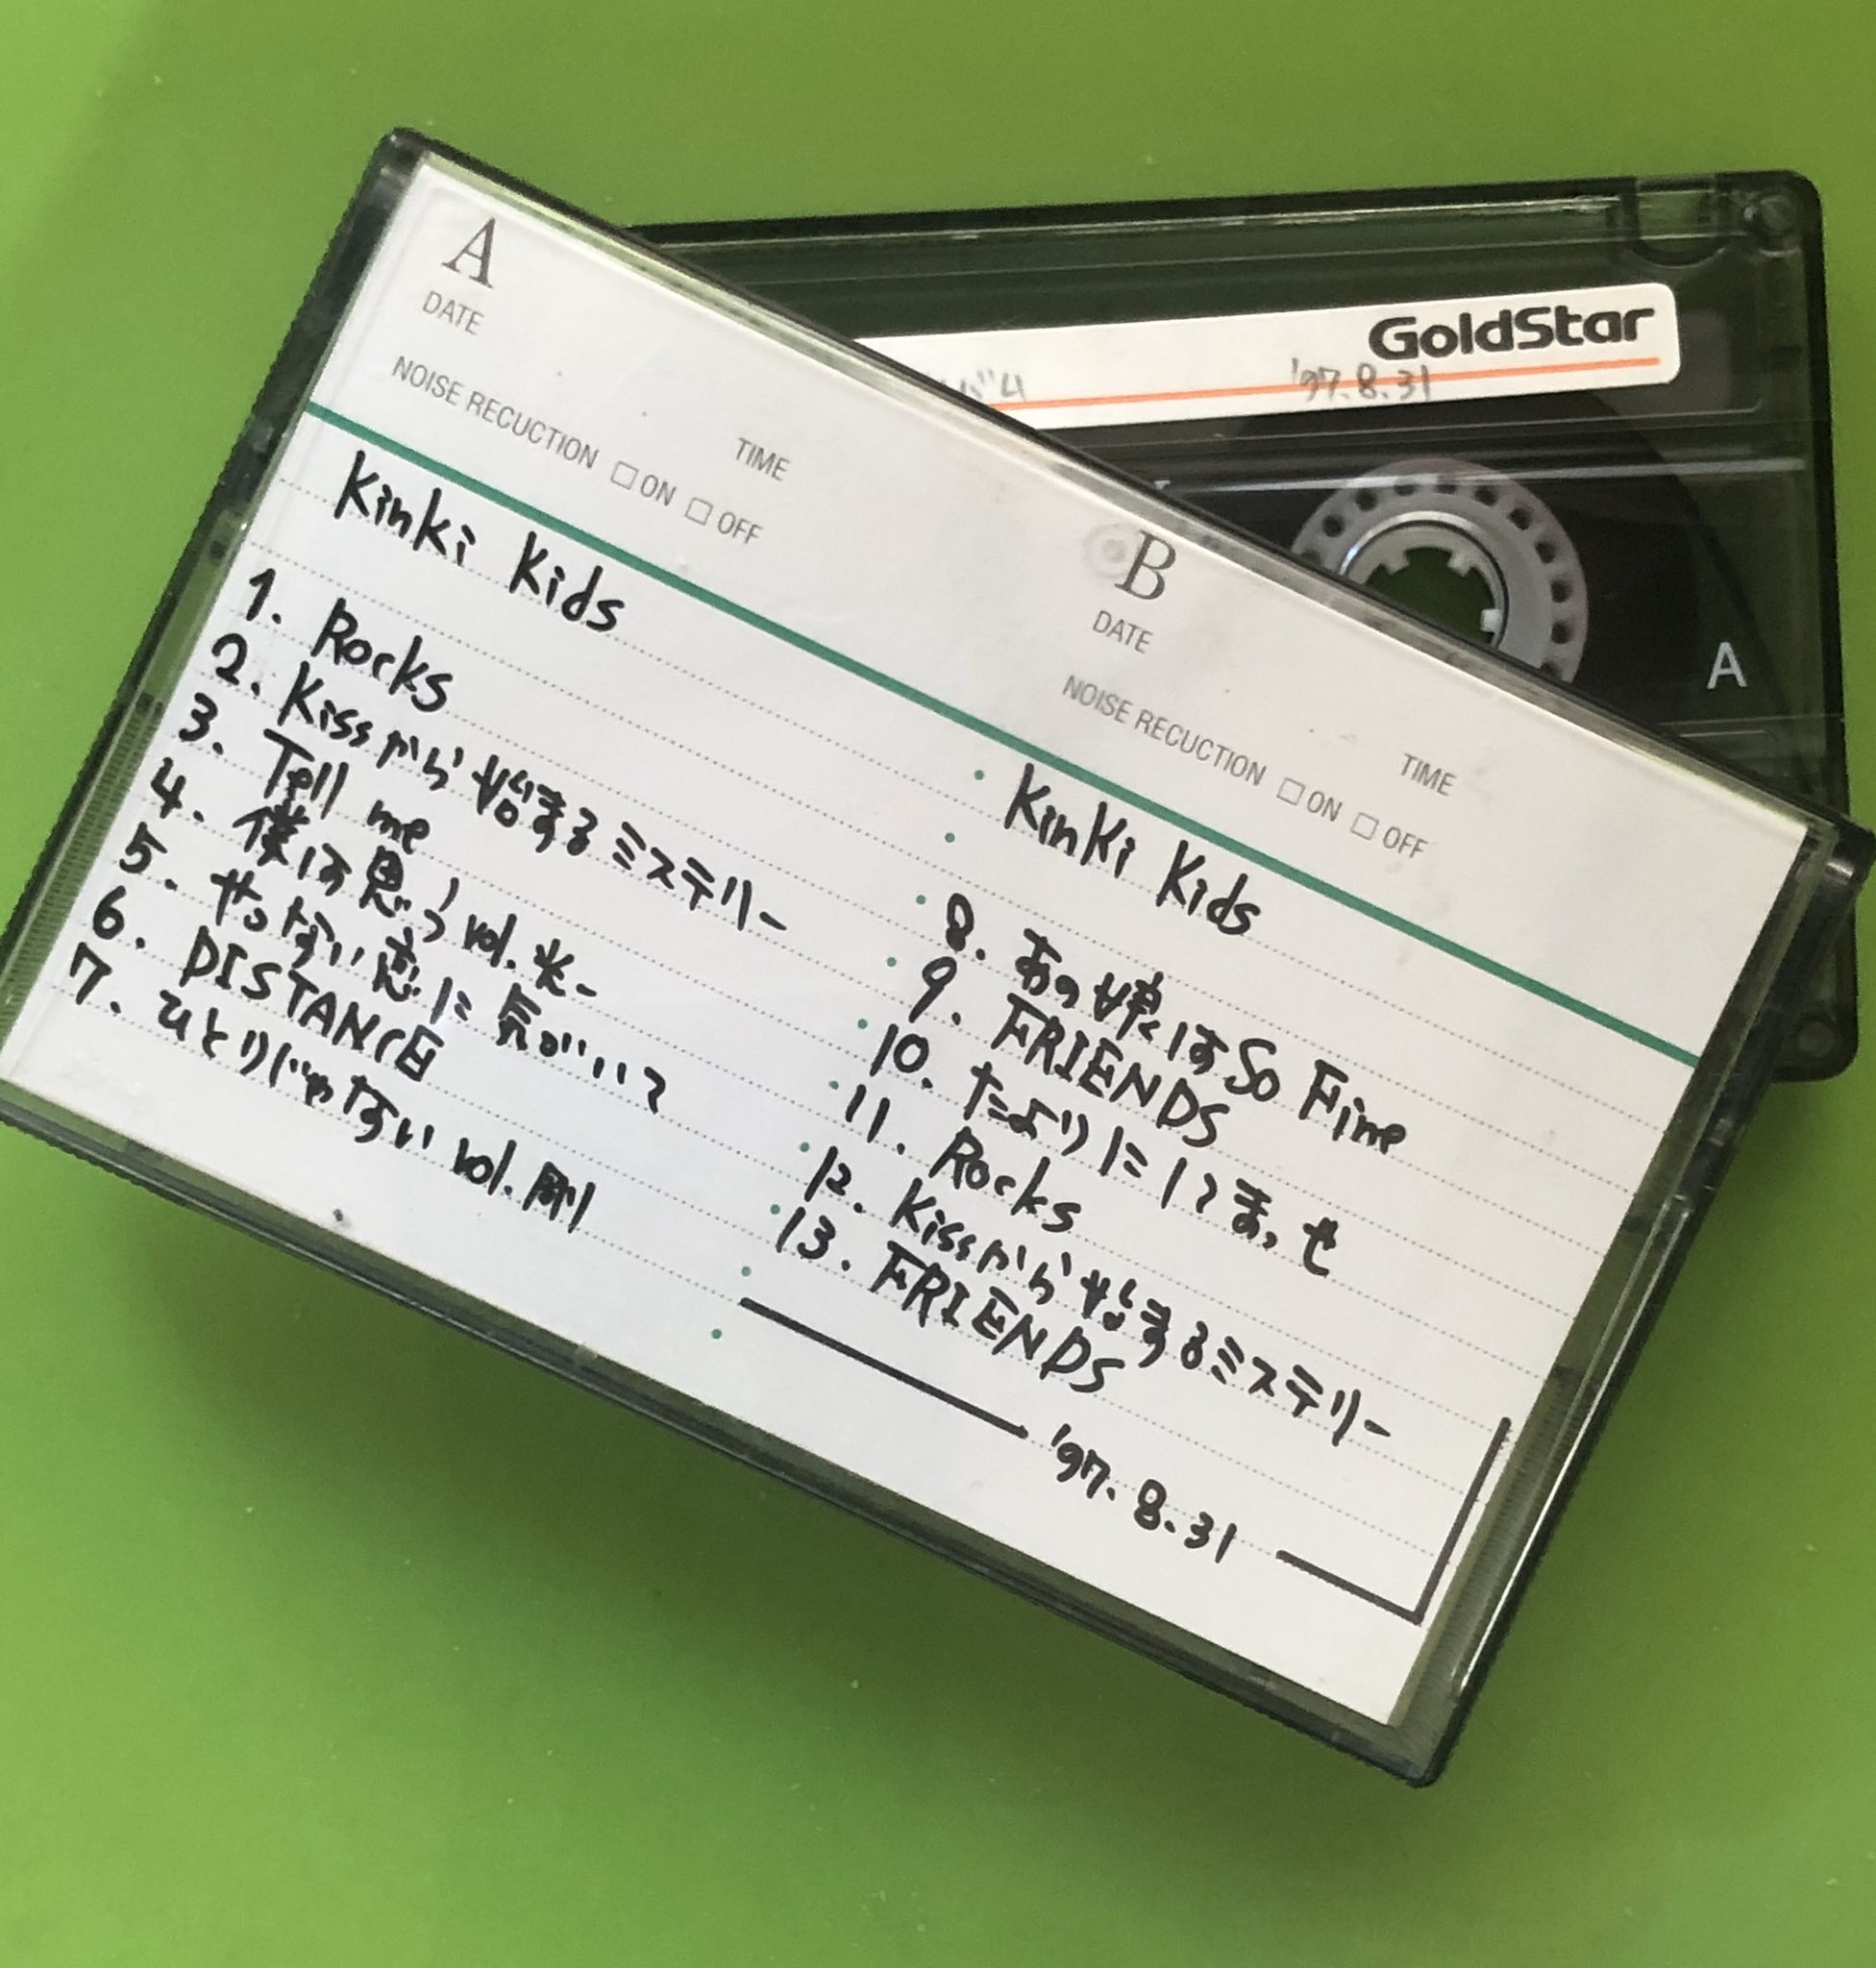 GoldStar
'97.8.31
A
A
DATE
NOISE RECUCTION □ON □OFF
TIME
Kinki Kids
1. Rocks
2. Kissから始まるミステリー
3. Tell me
4. 僕は思う vol. 光一
5. せつない恋に気がいて
6. DISTANCE
7. ひとりじゃない vol. 剛
B
DATE
NOISE RECUCTION □ON □OFF
TIME
Kinki Kids
8. あの娘はSo Fine
9. FRIENDS
10. たよりにしてまっせ
11. Rocks
12. Kissから始まるミステリー
13. FRIENDS
'97.8.31